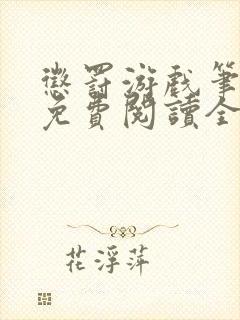 懲罰游戲筆
免費閱讀全
花浮萍